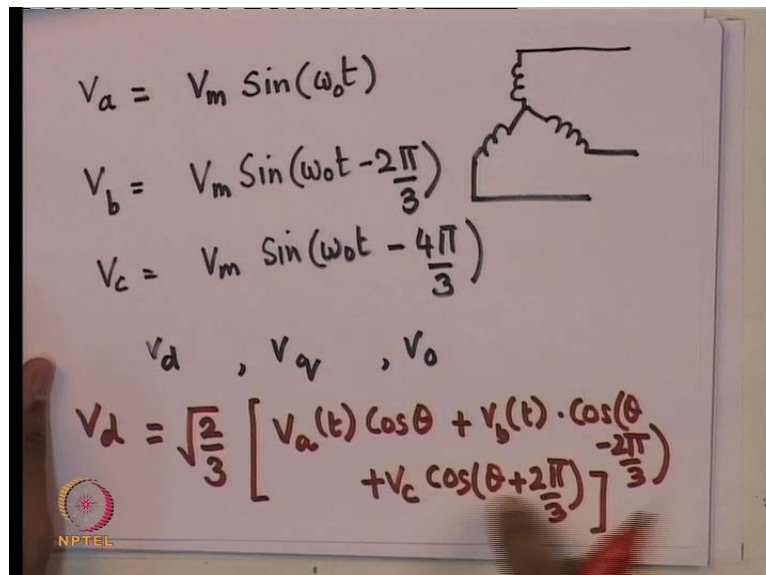 Va = Vm Sin(ω₀t)
Vb = Vm Sin(ω₀t - 2π/3)
Vc = Vm Sin(ω₀t - 4π/3)
Vd , Vq , V₀
Vd = √(2/3) [ Va(t) Cosθ + Vb(t) · Cos(θ - 2π/3)
+ Vc Cos(θ + 2π/3) ]
NPTEL